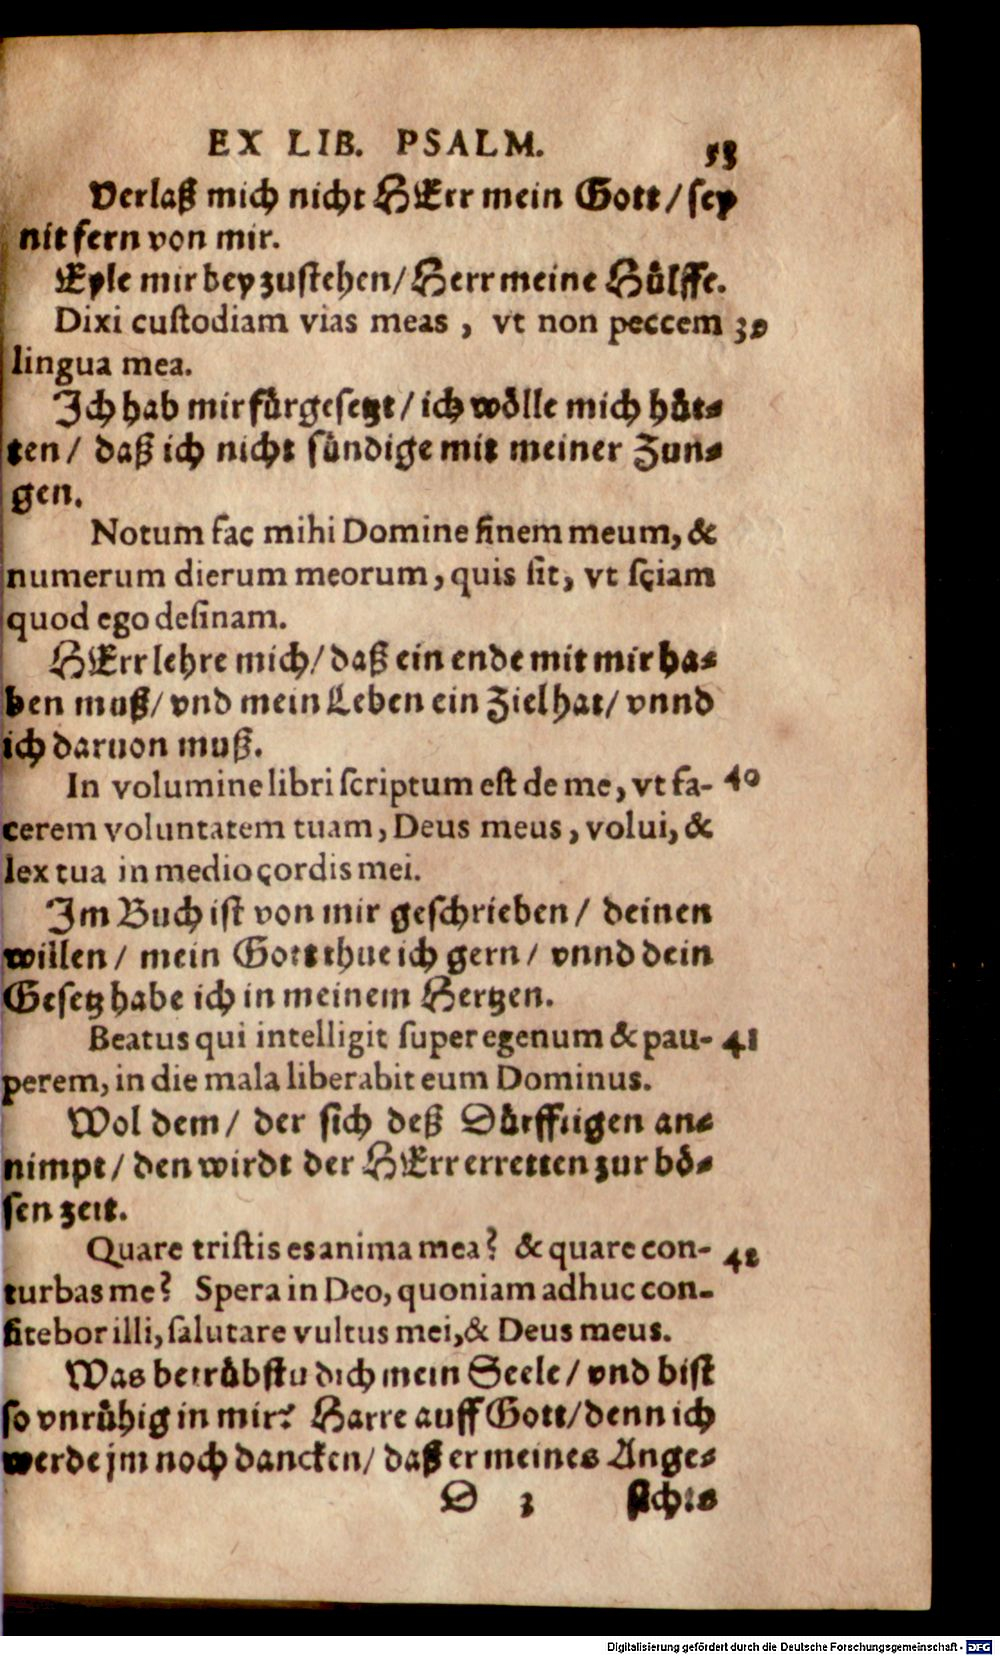 EX LIB. PSALM. 53
Verlaß mich nicht HErr mein Gott / sey
nit fern von mir.
Eyle mir bey zustehen / Herr meine Hülffe.
Dixi custodiam vias meas , vt non peccem 39
lingua mea.
Ich hab mir fürgesetzt / ich wölle mich hüt-
ten / daß ich nicht sündige mit meiner Zun-
gen.
Notum fac mihi Domine finem meum, &
numerum dierum meorum, quis sit, vt sciam
quod ego desinam.
HErr lehre mich / daß ein ende mit mir ha-
ben muß / vnd mein Leben ein Ziel hat / vnnd
ich daruon muß.
In volumine libri scriptum est de me, vt fa- 40
cerem voluntatem tuam, Deus meus, volui, &
lex tua in medio cordis mei.
Im Buch ist von mir geschrieben / deinen
willen / mein Gott thue ich gern / vnnd dein
Gesetz habe ich in meinem Hertzen.
Beatus qui intelligit super egenum & pau- 41
perem, in die mala liberabit eum Dominus.
Wol dem / der sich deß Dürfftigen an-
nimpt / den wirdt der HErr erretten zur bö-
sen zeit.
Quare tristis es anima mea? & quare con- 42
turbas me? Spera in Deo, quoniam adhuc con-
fitebor illi, salutare vultus mei, & Deus meus.
Was betrübstu dich mein Seele / vnd bist
so vnrühig in mir? Harre auff Gott / denn ich
werde jm noch dancken / daß er meines Ange-
D 3 sichts
Digitalisierung gefördert durch die Deutsche Forschungsgemeinschaft - DFG